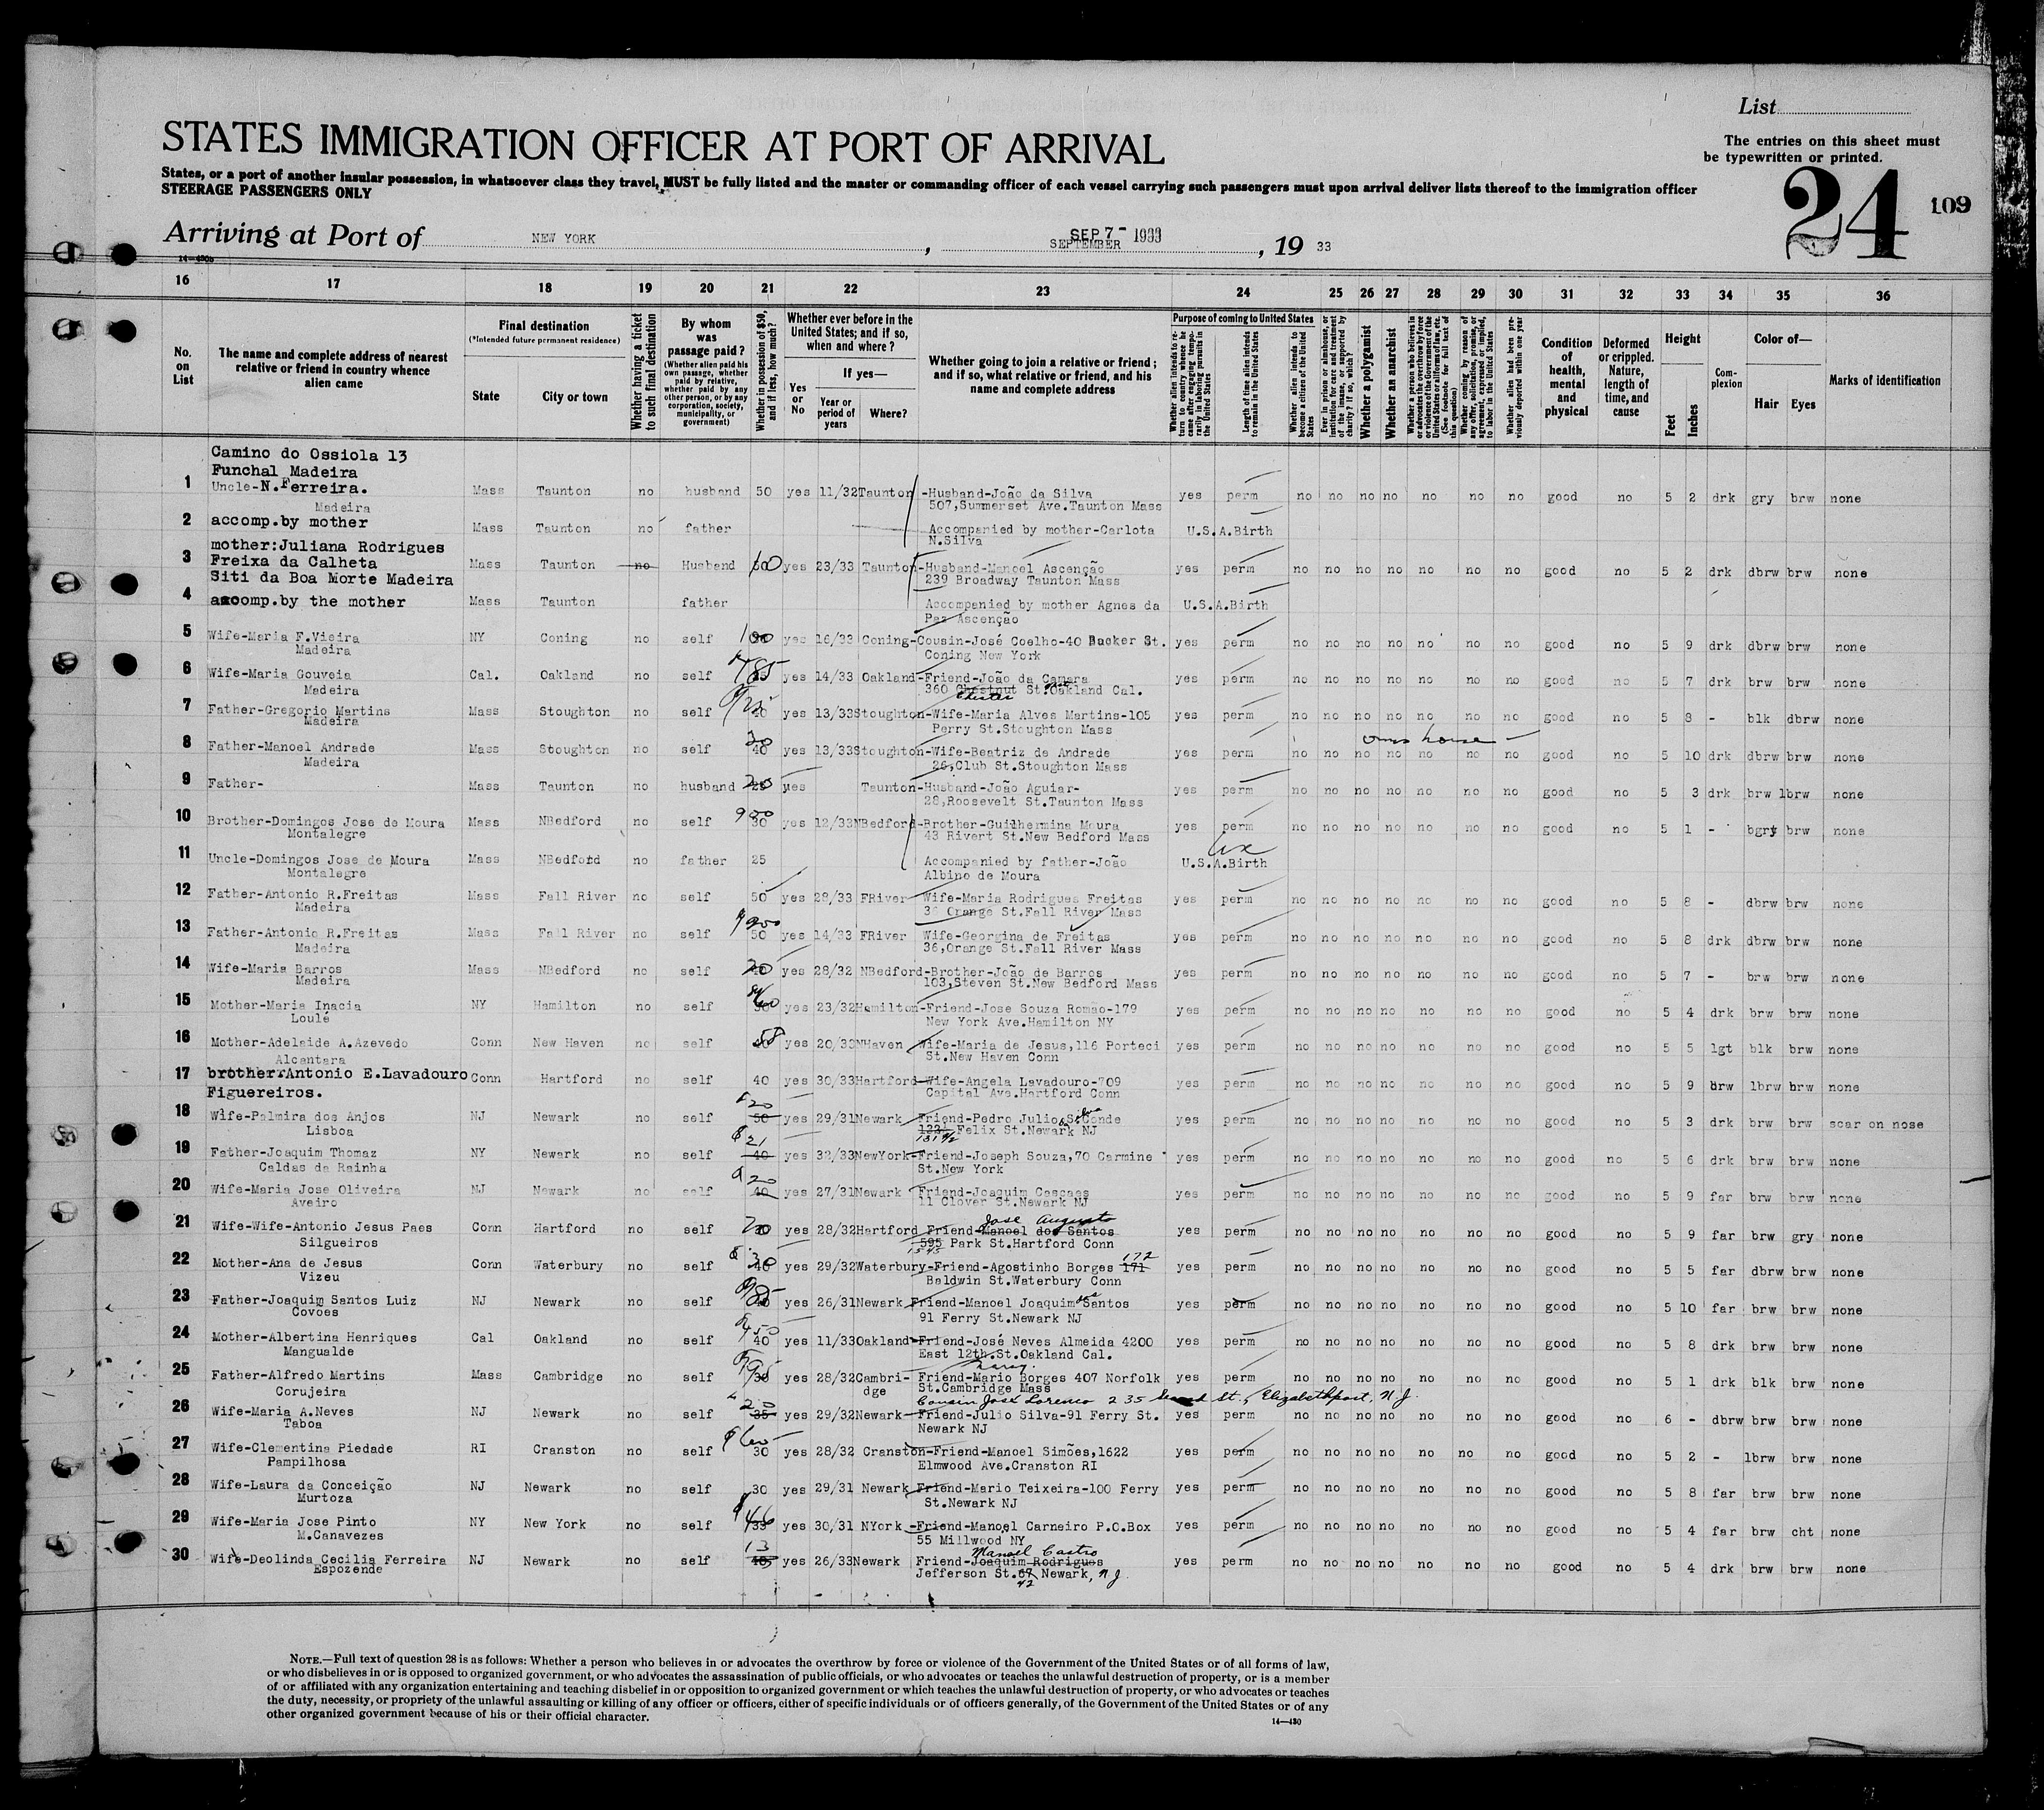 List
The entries on this sheet must
be typewritten or printed.
STATES IMMIGRATION OFFICER AT PORT OF ARRIVAL
States, or a port of another insular possession, in whatsoever class they travel, MUST be fully listed and the master or commanding officer of each vessel carrying such passengers must upon arrival deliver lists thereof to the immigration officer
STEERAGE PASSENGERS ONLY
24 109
Arriving at Port of NEW YORK, SEP 7- 1933 SEPTEMBER, 19 33
16 17 18 19 20 21 22 23 24 25 26 27 28 29 30 31 32 33 34 35 36
No. on List
The name and complete address of nearest relative or friend in country whence alien came
Final destination (*Intended future permanent residence)
State City or town
Whether having a ticket to such final destination
By whom was passage paid? (Whether alien paid his own passage, whether paid by relative, whether paid by any other person, or by any corporation, society, municipality, or government)
Whether in possession of $50, and if less, how much?
Whether ever before in the United States; and if so, when and where?
Yes or No If yes— Year or period of years Where?
Whether going to join a relative or friend; and if so, what relative or friend, and his name and complete address
Purpose of coming to United States
Whether alien intends to return to country whence he came after engaging temporarily in laboring pursuits in the United States
Length of time alien intends to remain in the United States
Whether alien intends to become a citizen of the United States
Ever in prison or almshouse, or institution for care and treatment of the insane, or supported by charity? If so, which?
Whether a polygamist
Whether an anarchist
Whether a person who believes in or advocates the overthrow by force or violence of the Government of the United States or all forms of law, etc. (See footnote for full text of this question)
Whether coming by reason of any offer, solicitation, promise, or agreement, expressed or implied, to labor in the United States
Whether alien had been previously deported within one year
Condition of health, mental and physical
Deformed or crippled. Nature, length of time, and cause
Height Feet Inches
Complexion
Color of— Hair Eyes
Marks of identification
Camino do Ossiola 13
Funchal Madeira
1 Uncle-N.Ferreira. Mass Taunton no husband 50 yes 11/32 Taunton -Husband-João da Silva yes perm no no no no no no no good no 5 2 drk gry brw none
Madeira 507,Summerset Ave.Taunton Mass
2 accomp.by mother Mass Taunton no father Accompanied by mother-Carlota U.S.A.Birth
N.Silva
mother:Juliana Rodrigues
3 Freixa da Calheta Mass Taunton no Husband yes 23/33 Taunton-Husband-Manoel Ascenção yes perm no no no no no no no good no 5 2 drk dbrw brw none
Siti da Boa Morte Madeira 239 Broadway Taunton Mass
4 accomp.by the mother Mass Taunton father Accompanied by mother Agnes da U.S.A.Birth
Paz Ascenção
5 Wife-Maria F.Vieira NY Coning no self yes 16/33 Coning-Cousin-José Coelho-40 Backer St. yes perm no no no no no no no good no 5 9 drk dbrw brw none
Madeira Coning New York
6 Wife-Maria Gouveia Cal. Oakland no self yes 14/33 Oakland-Friend-João da Camara yes perm no no no no no no no good no 5 7 drk brw brw none
Madeira 360 Chestnut St.Oakland Cal.
7 Father-Gregorio Martins Mass Stoughton no self yes 13/33Stoughton-Wife-Maria Alves Martins-105 yes perm no no no no no no no good no 5 8 - blk dbrw none
Madeira Perry St.Stoughton Mass
owns house
8 Father-Manoel Andrade Mass Stoughton no self 40 yes 13/33Stoughton-Wife-Beatriz de Andrade yes perm no no no no no no no good no 5 10 drk dbrw brw none
Madeira 26,Club St.Stoughton Mass
9 Father- Mass Taunton no husband yes Taunton-Husband-João Aguiar- yes perm no no no no no no no good no 5 3 drk brw lbrw none
28,Roosevelt St.Taunton Mass
10 Brother-Domingos Jose de Moura Mass NBedford no self 900 30 yes 12/33NBedford-Brother-Guilhermina Moura yes perm no no no no no no no good no 5 1 - bgry brw none
Montalegre 43 Rivert St.New Bedford Mass
11 Uncle-Domingos Jose de Moura Mass NBedford no father 25 Accompanied by father-João U.S.A.Birth
Montalegre Albino de Moura
12 Father-Antonio R.Freitas Mass Fall River no self 50 yes 28/33 FRiver Wife-Maria Rodrigues Freitas yes perm no no no no no no no good no 5 8 - dbrw brw none
Madeira 36 Orange St.Fall River Mass
13 Father-Antonio R.Freitas Mass Fall River no self 50 yes 14/33 FRiver Wife-Georgina de Freitas yes perm no no no no no no no good no 5 8 drk dbrw brw none
Madeira 36,Orange St.Fall River Mass
14 Wife-Maria Barros Mass NBedford no self yes 28/32 NBedford-Brother-João de Barros yes perm no no no no no no no good no 5 7 - brw brw none
Madeira 103,Steven St.New Bedford Mass
15 Mother-Maria Inacia NY Hamilton no self yes 23/32Hamilton-Friend-Jose Souza Romão-179 yes perm no no no no no no no good no 5 4 drk brw brw none
Loulé New York Ave.Hamilton NY
16 Mother-Adelaide A.Azevedo Conn New Haven no self 58 yes 20/33NHaven Wife-Maria de Jesus,116 Porteci yes perm no no no no no no no good no 5 5 lgt blk brw none
Alcantara St.New Haven Conn
17 brother-Antonio E.Lavadouro Conn Hartford no self 40 yes 30/33Hartford-Wife-Angela Lavadouro-709 yes perm no no no no no no no good no 5 9 brw lbrw brw none
Figuereiros. Capital Ave.Hartford Conn
18 Wife-Palmira dos Anjos NJ Newark no self $20 50 yes 29/31Newark Friend-Pedro Julio yes perm no no no no no no no good no 5 3 drk brw brw scar on nose
Lisboa 131 1/2 Felix St.Newark NJ
19 Father-Joaquim Thomaz NY Newark no self $21 40 yes 32/33NewYork-Friend-Joseph Souza,70 Carmine yes perm no no no no no no no good no 5 6 drk brw brw none
Caldas da Rainha St.New York
20 Wife-Maria Jose Oliveira NJ Newark no self $20 40 yes 27/31Newark Friend-Joaquim Cascaes yes perm no no no no no no no good no 5 9 far brw brw none
Aveiro 11 Clover St.Newark NJ
Jose Augusto
21 Wife-Wife-Antonio Jesus Paes Conn Hartford no self yes 28/32Hartford Friend-Manoel dos Santos yes perm no no no no no no no good no 5 9 far brw gry none
Silgueiros 595 Park St.Hartford Conn
1545 172
22 Mother-Ana de Jesus Conn Waterbury no self $30 40 yes 29/32Waterbury-Friend-Agostinho Borges 171 yes perm no no no no no no no good no 5 5 far dbrw brw none
Vizeu Baldwin St.Waterbury Conn
23 Father-Joaquim Santos Luiz NJ Newark no self yes 26/31Newark Friend-Manoel Joaquim dos Santos yes perm no no no no no no no good no 5 10 far brw brw none
Covões 91 Ferry St.Newark NJ
24 Mother-Albertina Henriques Cal Oakland no self $450 40 yes 11/33Oakland-Friend-José Neves Almeida 4200 yes perm no no no no no no no good no 5 8 drk brw brw none
Mangualde East 12th.St.Oakland Cal.
25 Father-Alfredo Martins Mass Cambridge no self yes 28/32Cambri- Friend-Mario Borges 407 Norfolk yes perm no no no no no no no good no 5 1 drk blk brw none
Corujeira dge St.Cambridge Mass
Cousin José Lorenco 235 Second St., Elizabethport, N.J.
26 Wife-Maria A.Neves NJ Newark no self 20 35 yes 29/32Newark-Friend-Julio Silva-91 Ferry St. yes perm no no no no no no no good no 6 - dbrw brw brw none
Taboa Newark NJ
27 Wife-Clementina Piedade RI Cranston no self 30 yes 28/32 Cranston-Friend-Manoel Simões,1622 yes perm no no no no no no no good no 5 2 - lbrw brw none
Pampilhosa Elmwood Ave.Cranston RI
28 Wife-Laura da Conceição NJ Newark no self 30 yes 29/31 Newark Friend-Mario Teixeira-100 Ferry yes perm no no no no no no no good no 5 8 far brw brw none
Murtoza St.Newark NJ
29 Wife-Maria Jose Pinto NY New York no self $46 yes 30/31 NYork -Friend-Manoel Carneiro P.O.Box yes perm no no no no no no no good no 5 4 far brw cht none
M.Canavezes 55 Millwood NY
13 Manoel Castro
30 Wife-Deolinda Cecilia Ferreira NJ Newark no self yes 26/33Newark Friend-Joaquim Rodrigues yes perm no no no no no no no good no 5 4 drk brw brw none
Espozende Jefferson St.67 Newark, N.J.
42
NOTE.—Full text of question 28 is as follows: Whether a person who believes in or advocates the overthrow by force or violence of the Government of the United States or of all forms of law,
or who disbelieves in or is opposed to organized government, or who advocates the assassination of public officials, or who advocates or teaches the unlawful destruction of property, or is a member
of or affiliated with any organization entertaining and teaching disbelief in or opposition to organized government or which teaches the unlawful destruction of property, or who advocates or teaches
the duty, necessity, or propriety of the unlawful assaulting or killing of any officer or officers, either of specific individuals or of officers generally, of the Government of the United States or of any
other organized government because of his or their official character.
14—430